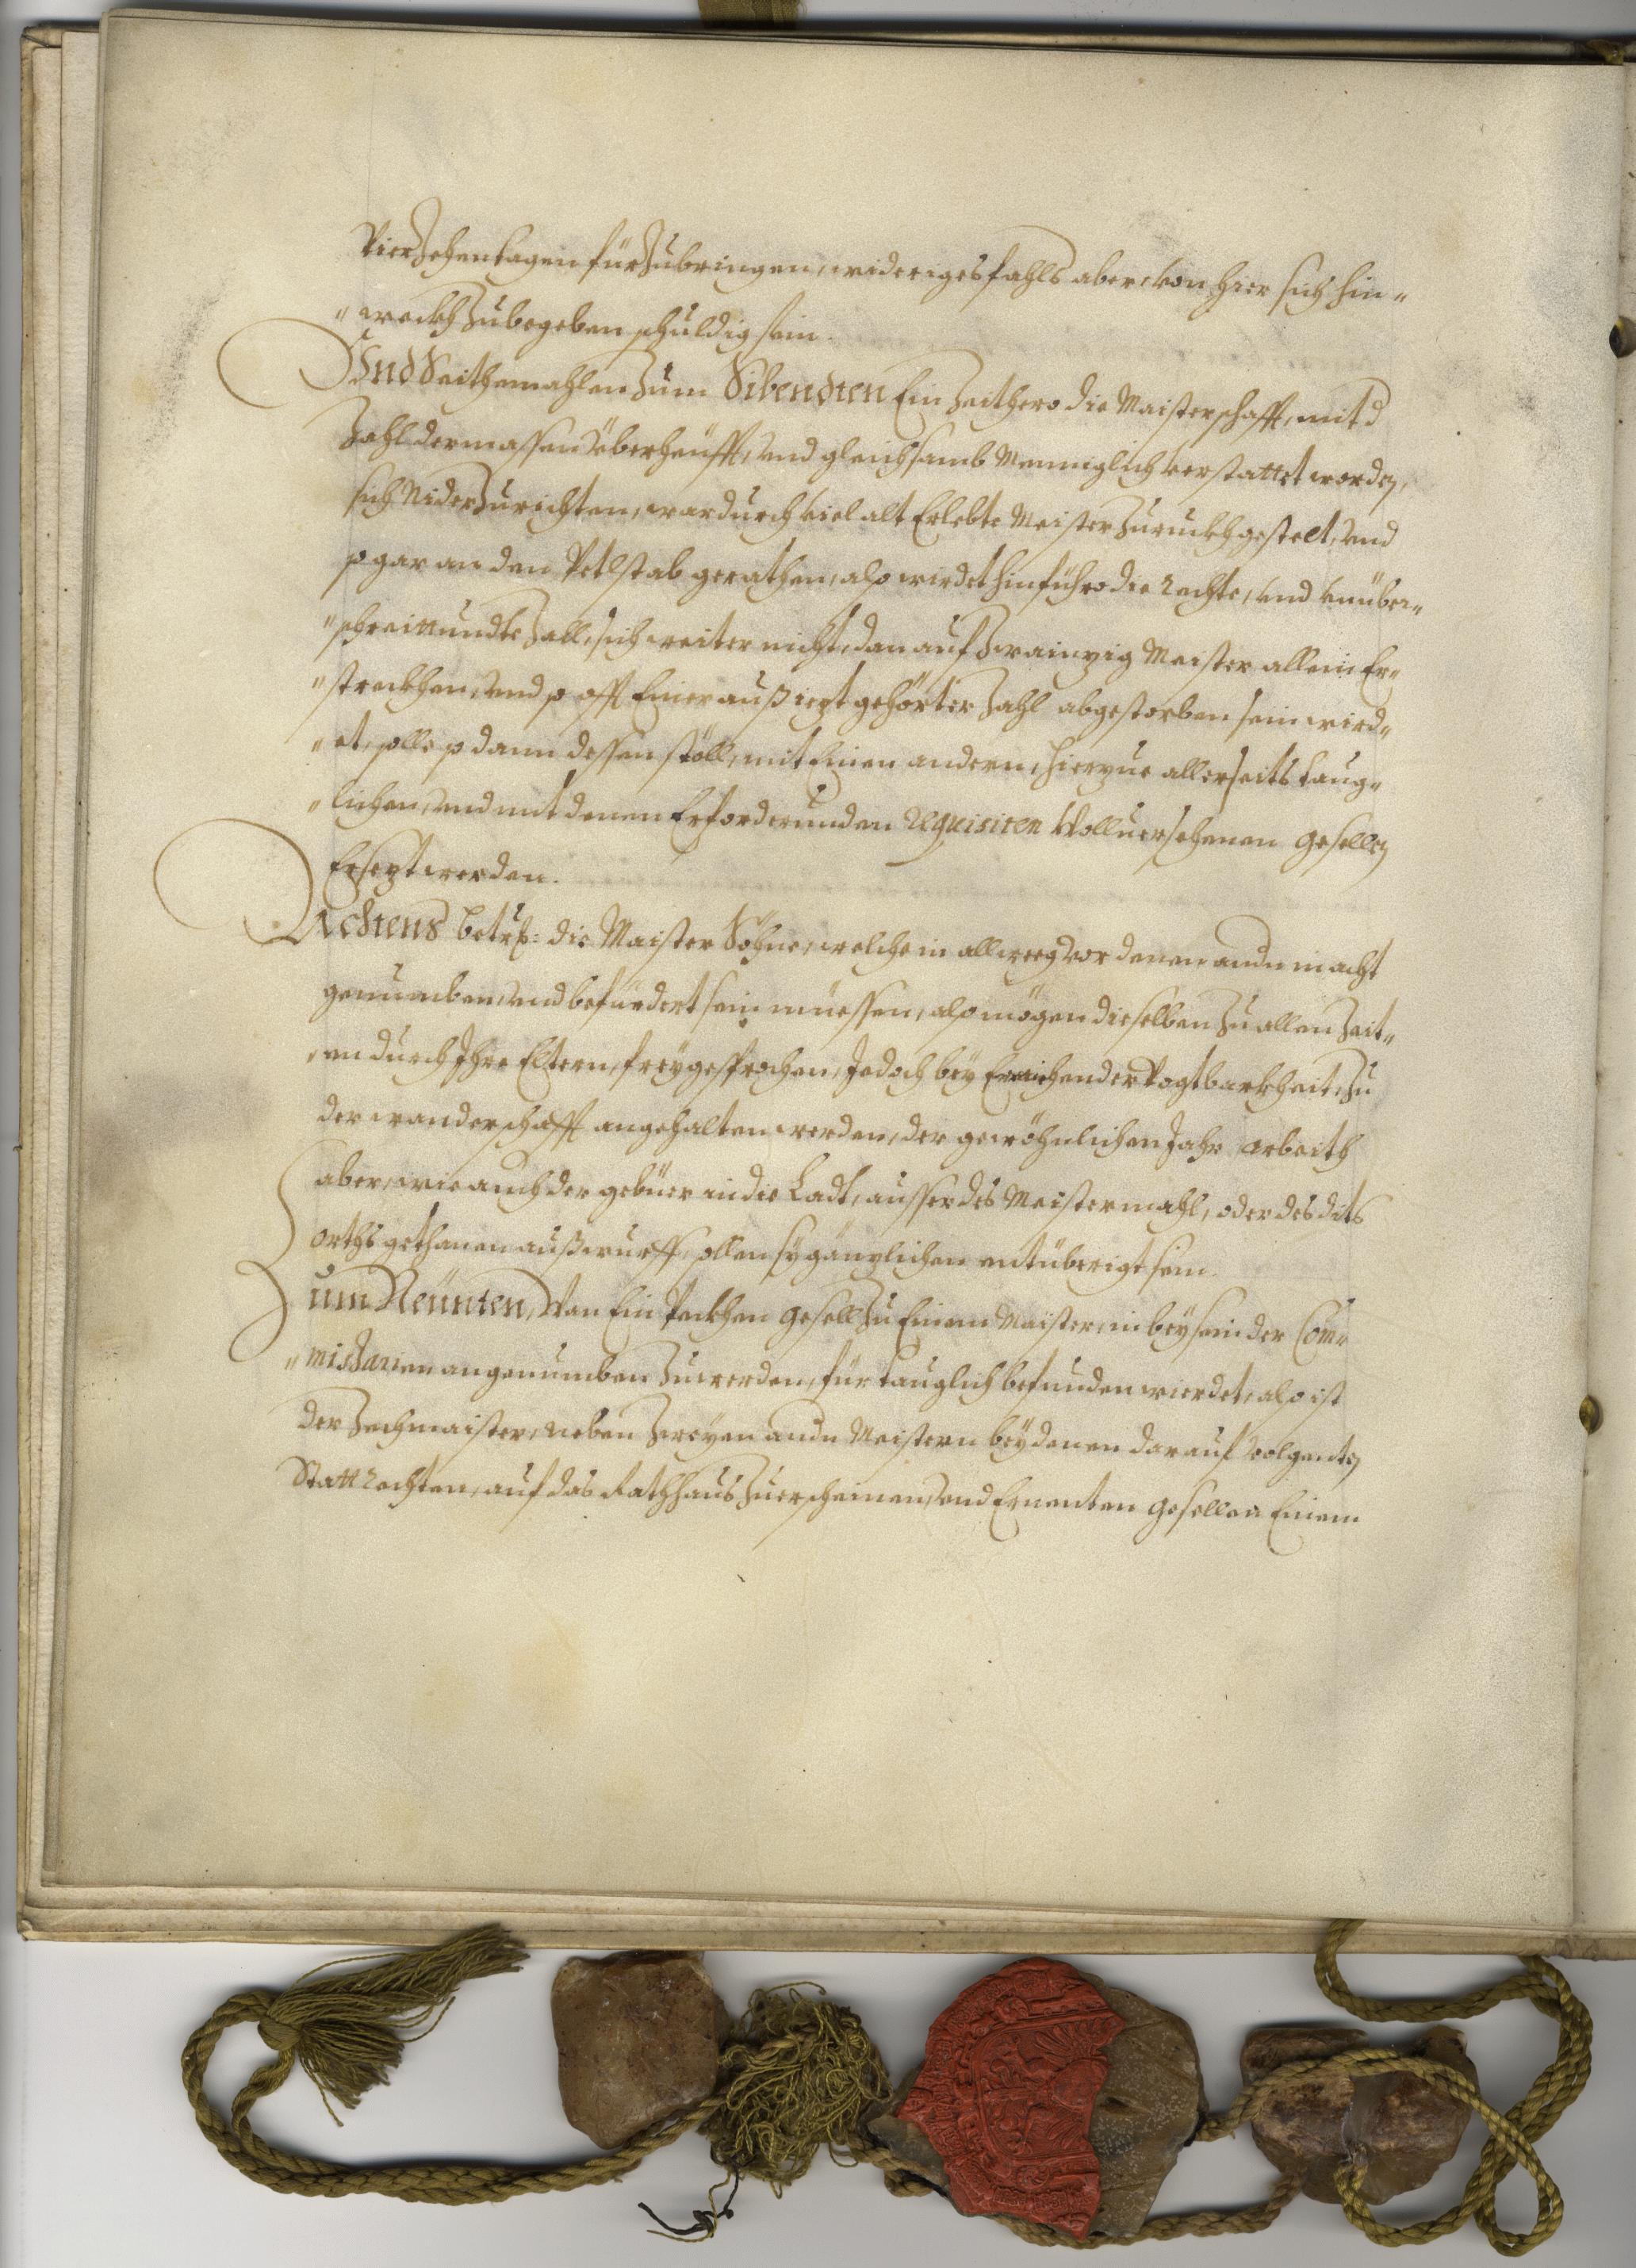 Vierzehen tagen fürzubringen, widerigesfahls aber, von hier sich hin„
„weckh zubegeben schuldig sein.
Und Seithemahlen zum Sibendten Ein Zeithero die Maisterschafft, mit d
Zahl dermassen überheüfft, und gleichsamb Menniglich verstattet worden,
sich Niderzurichten, wardurch viel alt Erlebte Meister zuruckhgestelt, und
so gar an den Petlstab gerathen, also wirdet hinführo die rechte, und unüber„
„schreittundte Zall, sich weiter nicht, dan auf Zwainzig Meister allein Er„
„streckhen, und so offt Einer auß iezt gehörter Zahl abgestorben sein wird„
„et, solle so dann dessen stöll, mit Einen andern, hierzue allerseits taug„
„lichen, und mit denen Erforderunden requisiten Wolluersehenen gesellen
Ersezt werden.
Achtens betrf: die Maister Söhne, welche in allweeg vor denen andn in acht
genumben, und befürdert sein müessen, also mögen dieselben zu allen Zeit„
„en durch Ihre Eltern, freygesprochen, Jedoch bey Erreichender Vogtbarkheit, zu
der wanderschafft angehalten werden, der gewöhnlichen Jahr arbeith
aber, wie auch der gebüer in die Ladt, ausser des Meistermahl, oder des dits
orths gethanen außwurff, sollen sy gänzlichen entüberigt sein.
Zum Neünten, Wan Ein Peckhen gesell zu Einem Maister, in beysein der Com„
„missarien angenumben zuwerden, für tauglich befunden wierdet, also ist
der Zechmaister, neben Zweyen andn Meistern bey denen darauf volgenten
Statt rechten, auf das Rathhaus zuerscheinen, und Ernenten gesellen Einem